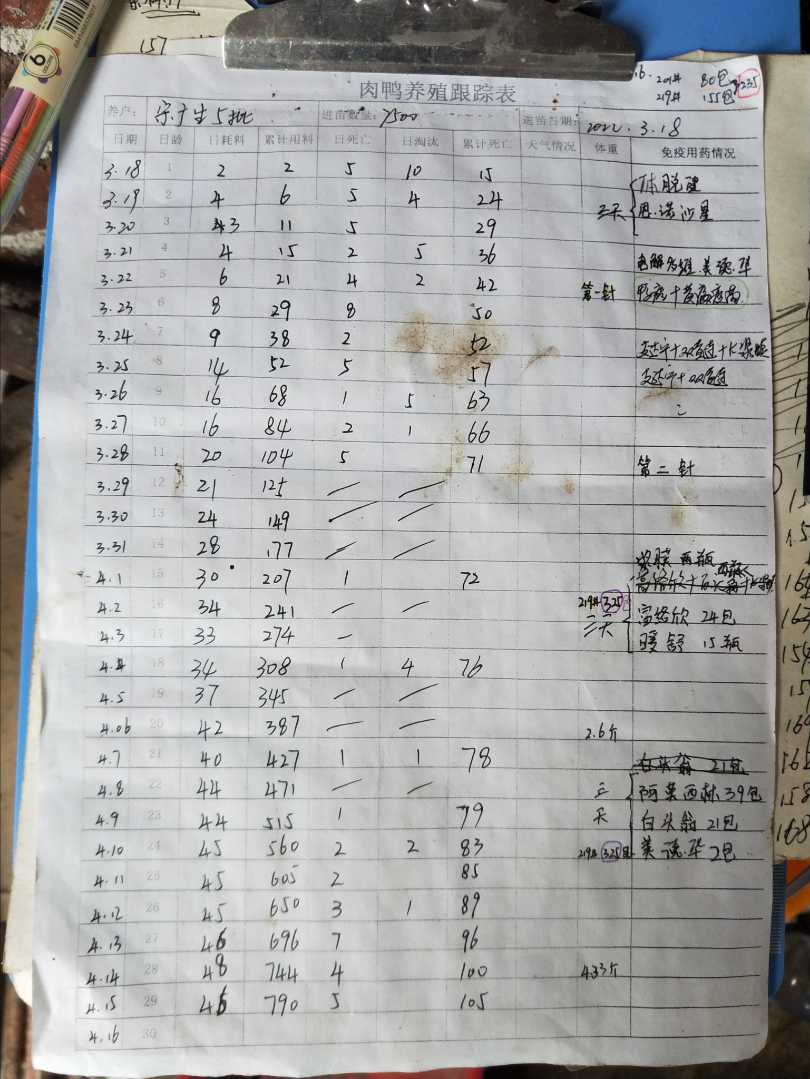 157
16. 201# 80包
219# 155包 235
肉鸭养殖跟踪表
养户: 宗广生5批 进苗数量: 7500 进苗日期: 2022.3.18
日期 日龄 日耗料 累计用料 日死亡 日淘汰 累计死亡 天气情况 体重 免疫用药情况
3.18 1 2 2 5 10 15
3.19 2 4 6 5 4 24 三天 恩诺沙星
3.20 3 3 11 5 29
3.21 4 4 15 2 5 36 电解多维 美
3.22 5 6 21 4 2 42 第一针
3.23 6 8 29 8 50
3.24 7 9 38 2 52
3.25 8 14 52 5 57
3.26 9 16 68 1 5 63
3.27 10 16 84 2 1 66
3.28 11 20 104 5 71 第二针
3.29 12 21 125 — —
3.30 13 24 149 — —
3.31 14 28 177 — — 两瓶
4.1 15 30 207 1 72
4.2 16 34 241 — — 219# 325包 富络欣 24包
4.3 17 33 274 — 三天 暖舒 15瓶
4.4 18 34 308 1 4 76
4.5 19 37 345 — —
4.06 20 42 387 — — 2.6斤
4.7 21 40 427 1 1 78 白头翁 21包
4.8 22 44 471 — — 三 阿莫西林39包
4.9 23 44 515 1 79 天 白头翁 21包
4.10 24 45 560 2 2 83 219# 325包 美 2包
4.11 25 45 605 2 85
4.12 26 45 650 3 1 89
4.13 27 46 696 7 96
4.14 28 48 744 4 100 4.33斤
4.15 29 46 790 5 105
4.16 30